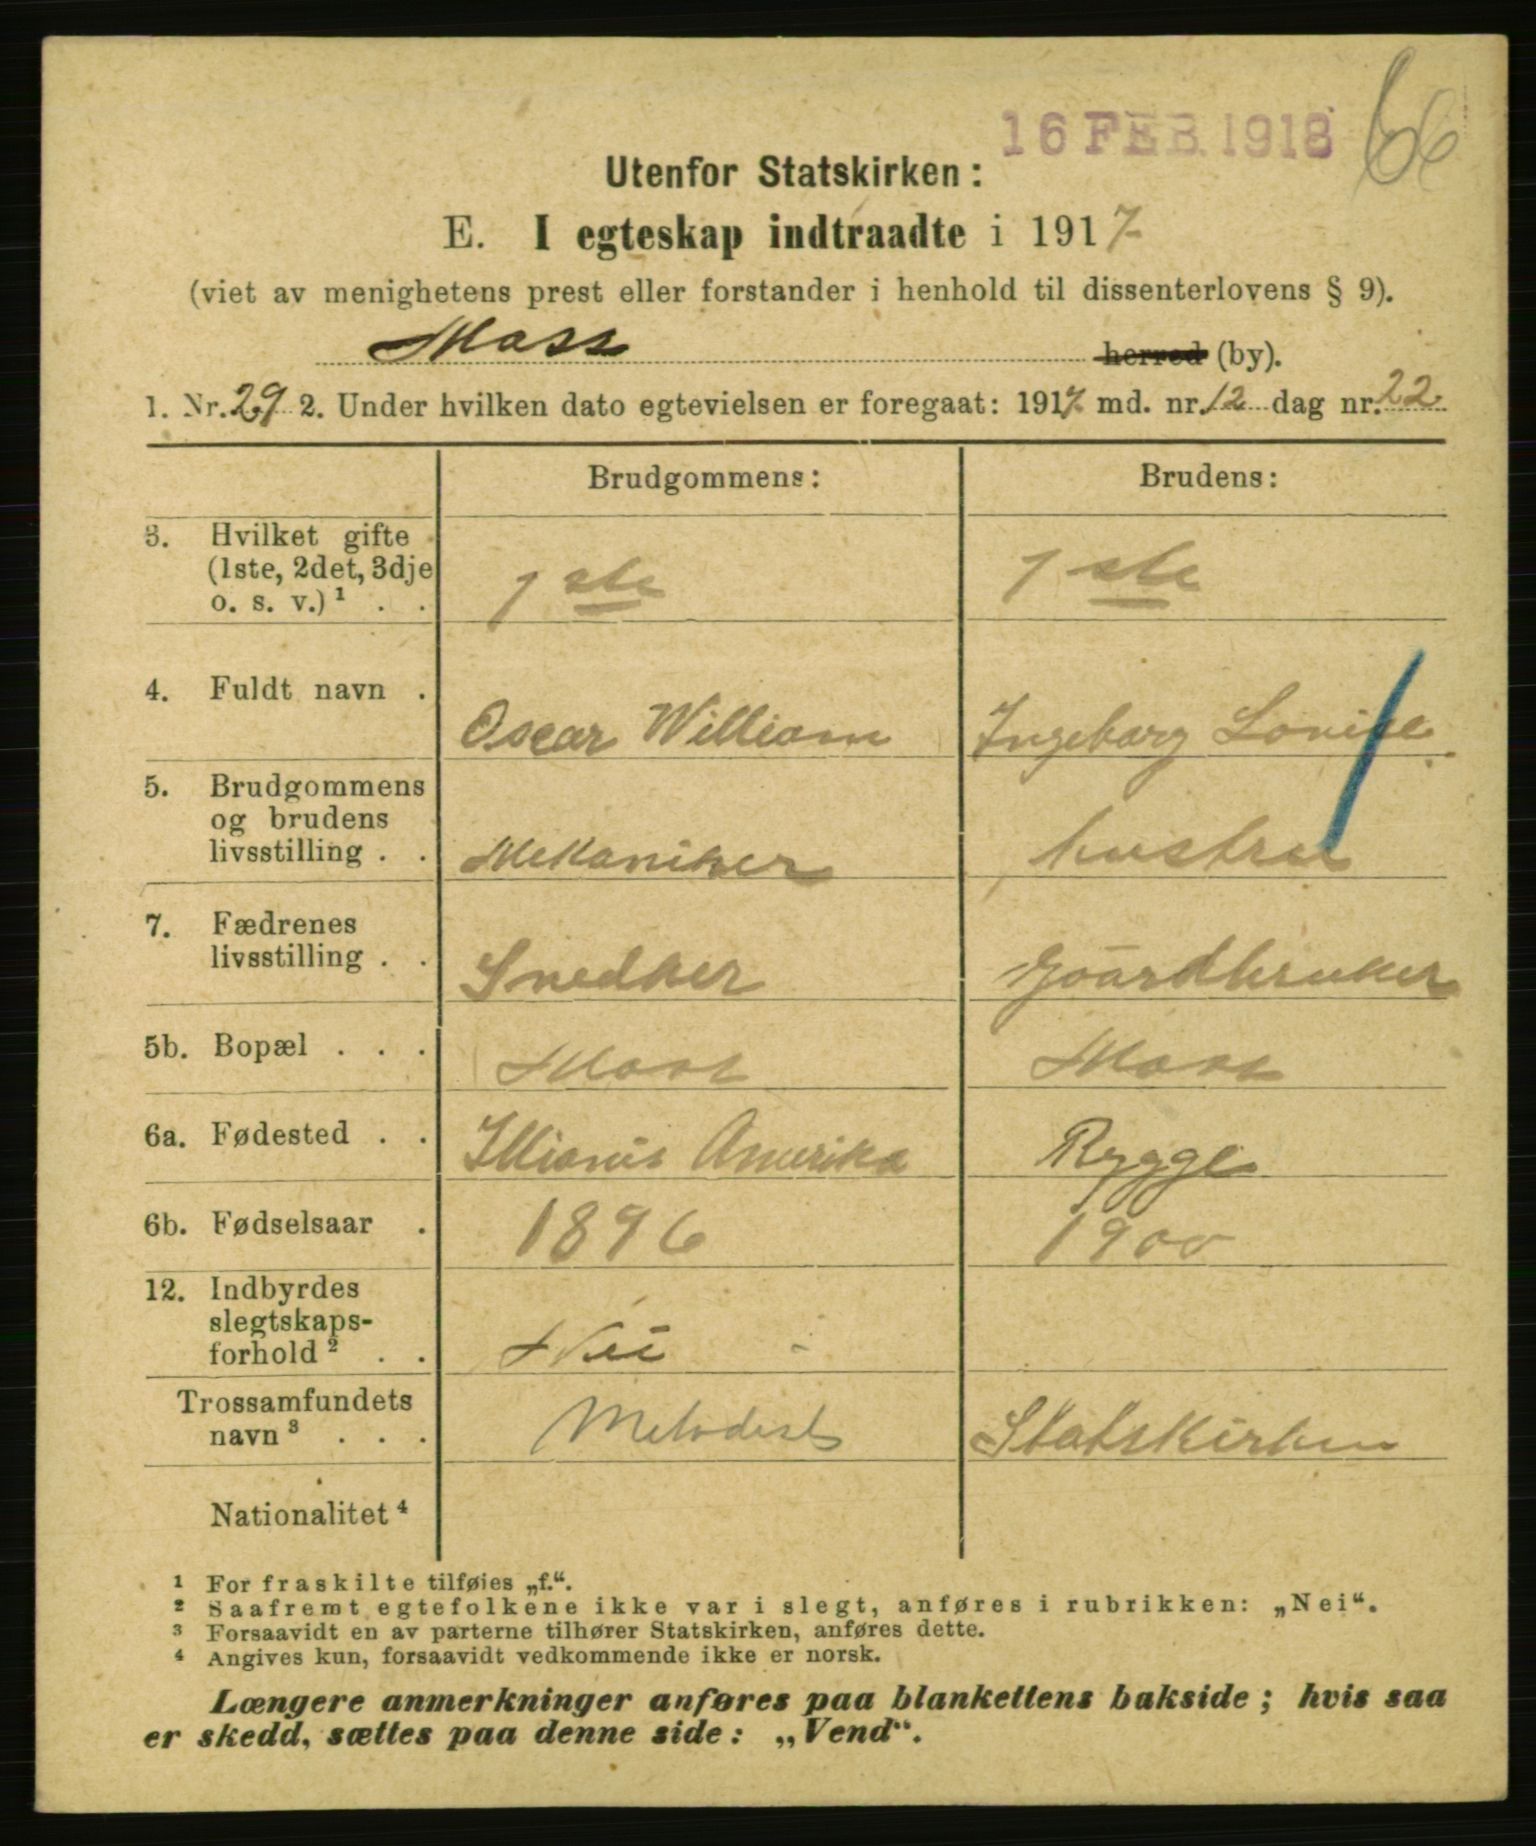 16 FEB. 1918 66
Utenfor Statskirken:
E. I egteskap indtraadte i 1917
(viet av menighetens prest eller forstander i henhold til dissenterlovens § 9).
Moss herred (by).
1. Nr. 29 2. Under hvilken dato egtevielsen er foregaat: 1917 md. nr. 12 dag nr. 22
Brudgommens: Brudens:
3. Hvilket gifte
(1ste, 2det, 3dje
o. s. v.) ¹ . . 1 ste 1 ste
4. Fuldt navn . Oscar William Ingeborg Lovise
5. Brudgommens
og brudens
livsstilling . . Mekaniker hustru
7. Fædrenes
livsstilling . . Snedker Gaardbruker
5b. Bopæl . . . Moss Moss
6a. Fødested . . Illianis Amerika Rygge
6b. Fødselsaar . 1896 1900
12. Indbyrdes
slegtskaps-
forhold ² . . Nei -
Trossamfundets
navn ³ . . . Metodist Statskirken
Nationalitet ⁴
¹ For fraskilte tilføies „f.“.
² Saafremt egtefolkene ikke var i slegt, anføres i rubrikken: „Nei“.
³ Forsaavidt en av parterne tilhører Statskirken, anføres dette.
⁴ Angives kun, forsaavidt vedkommende ikke er norsk.
Længere anmerkninger anføres paa blankettens bakside; hvis saa
er skedd, sættes paa denne side: „Vend“.